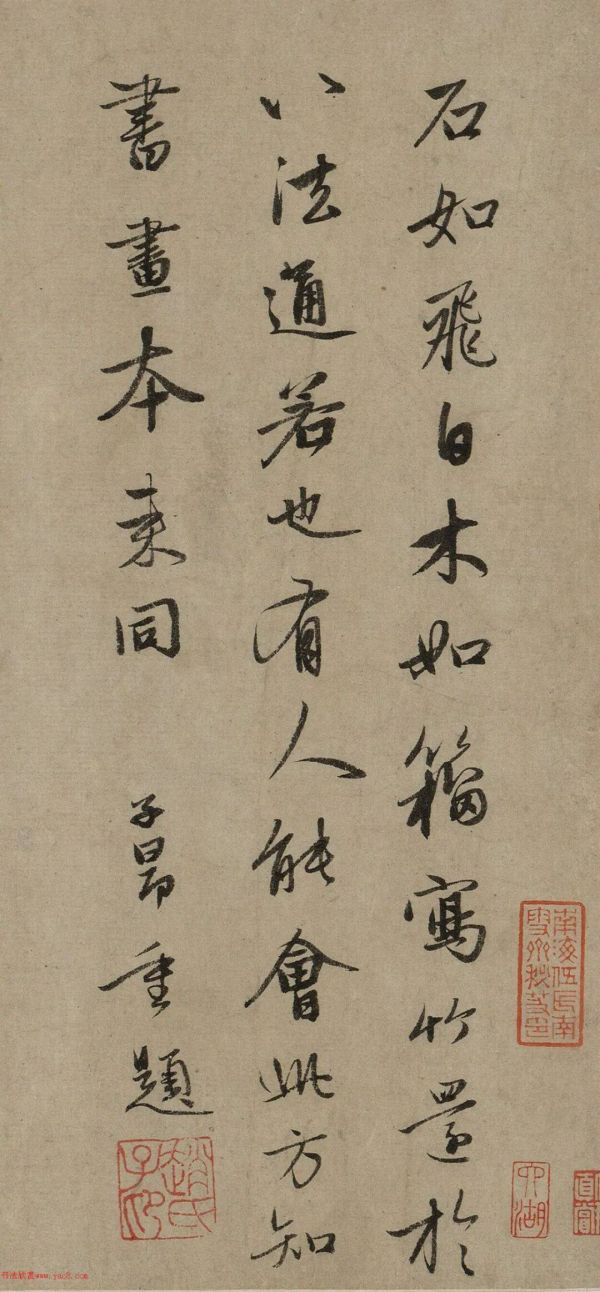 石如飛白木如籀寫竹還於
八法通若也有人能會此方知
書畫本來同
子昂重題
趙氏子昂
南海伍氏南
雪齋秘笈印
书法欣赏www.yac8.com